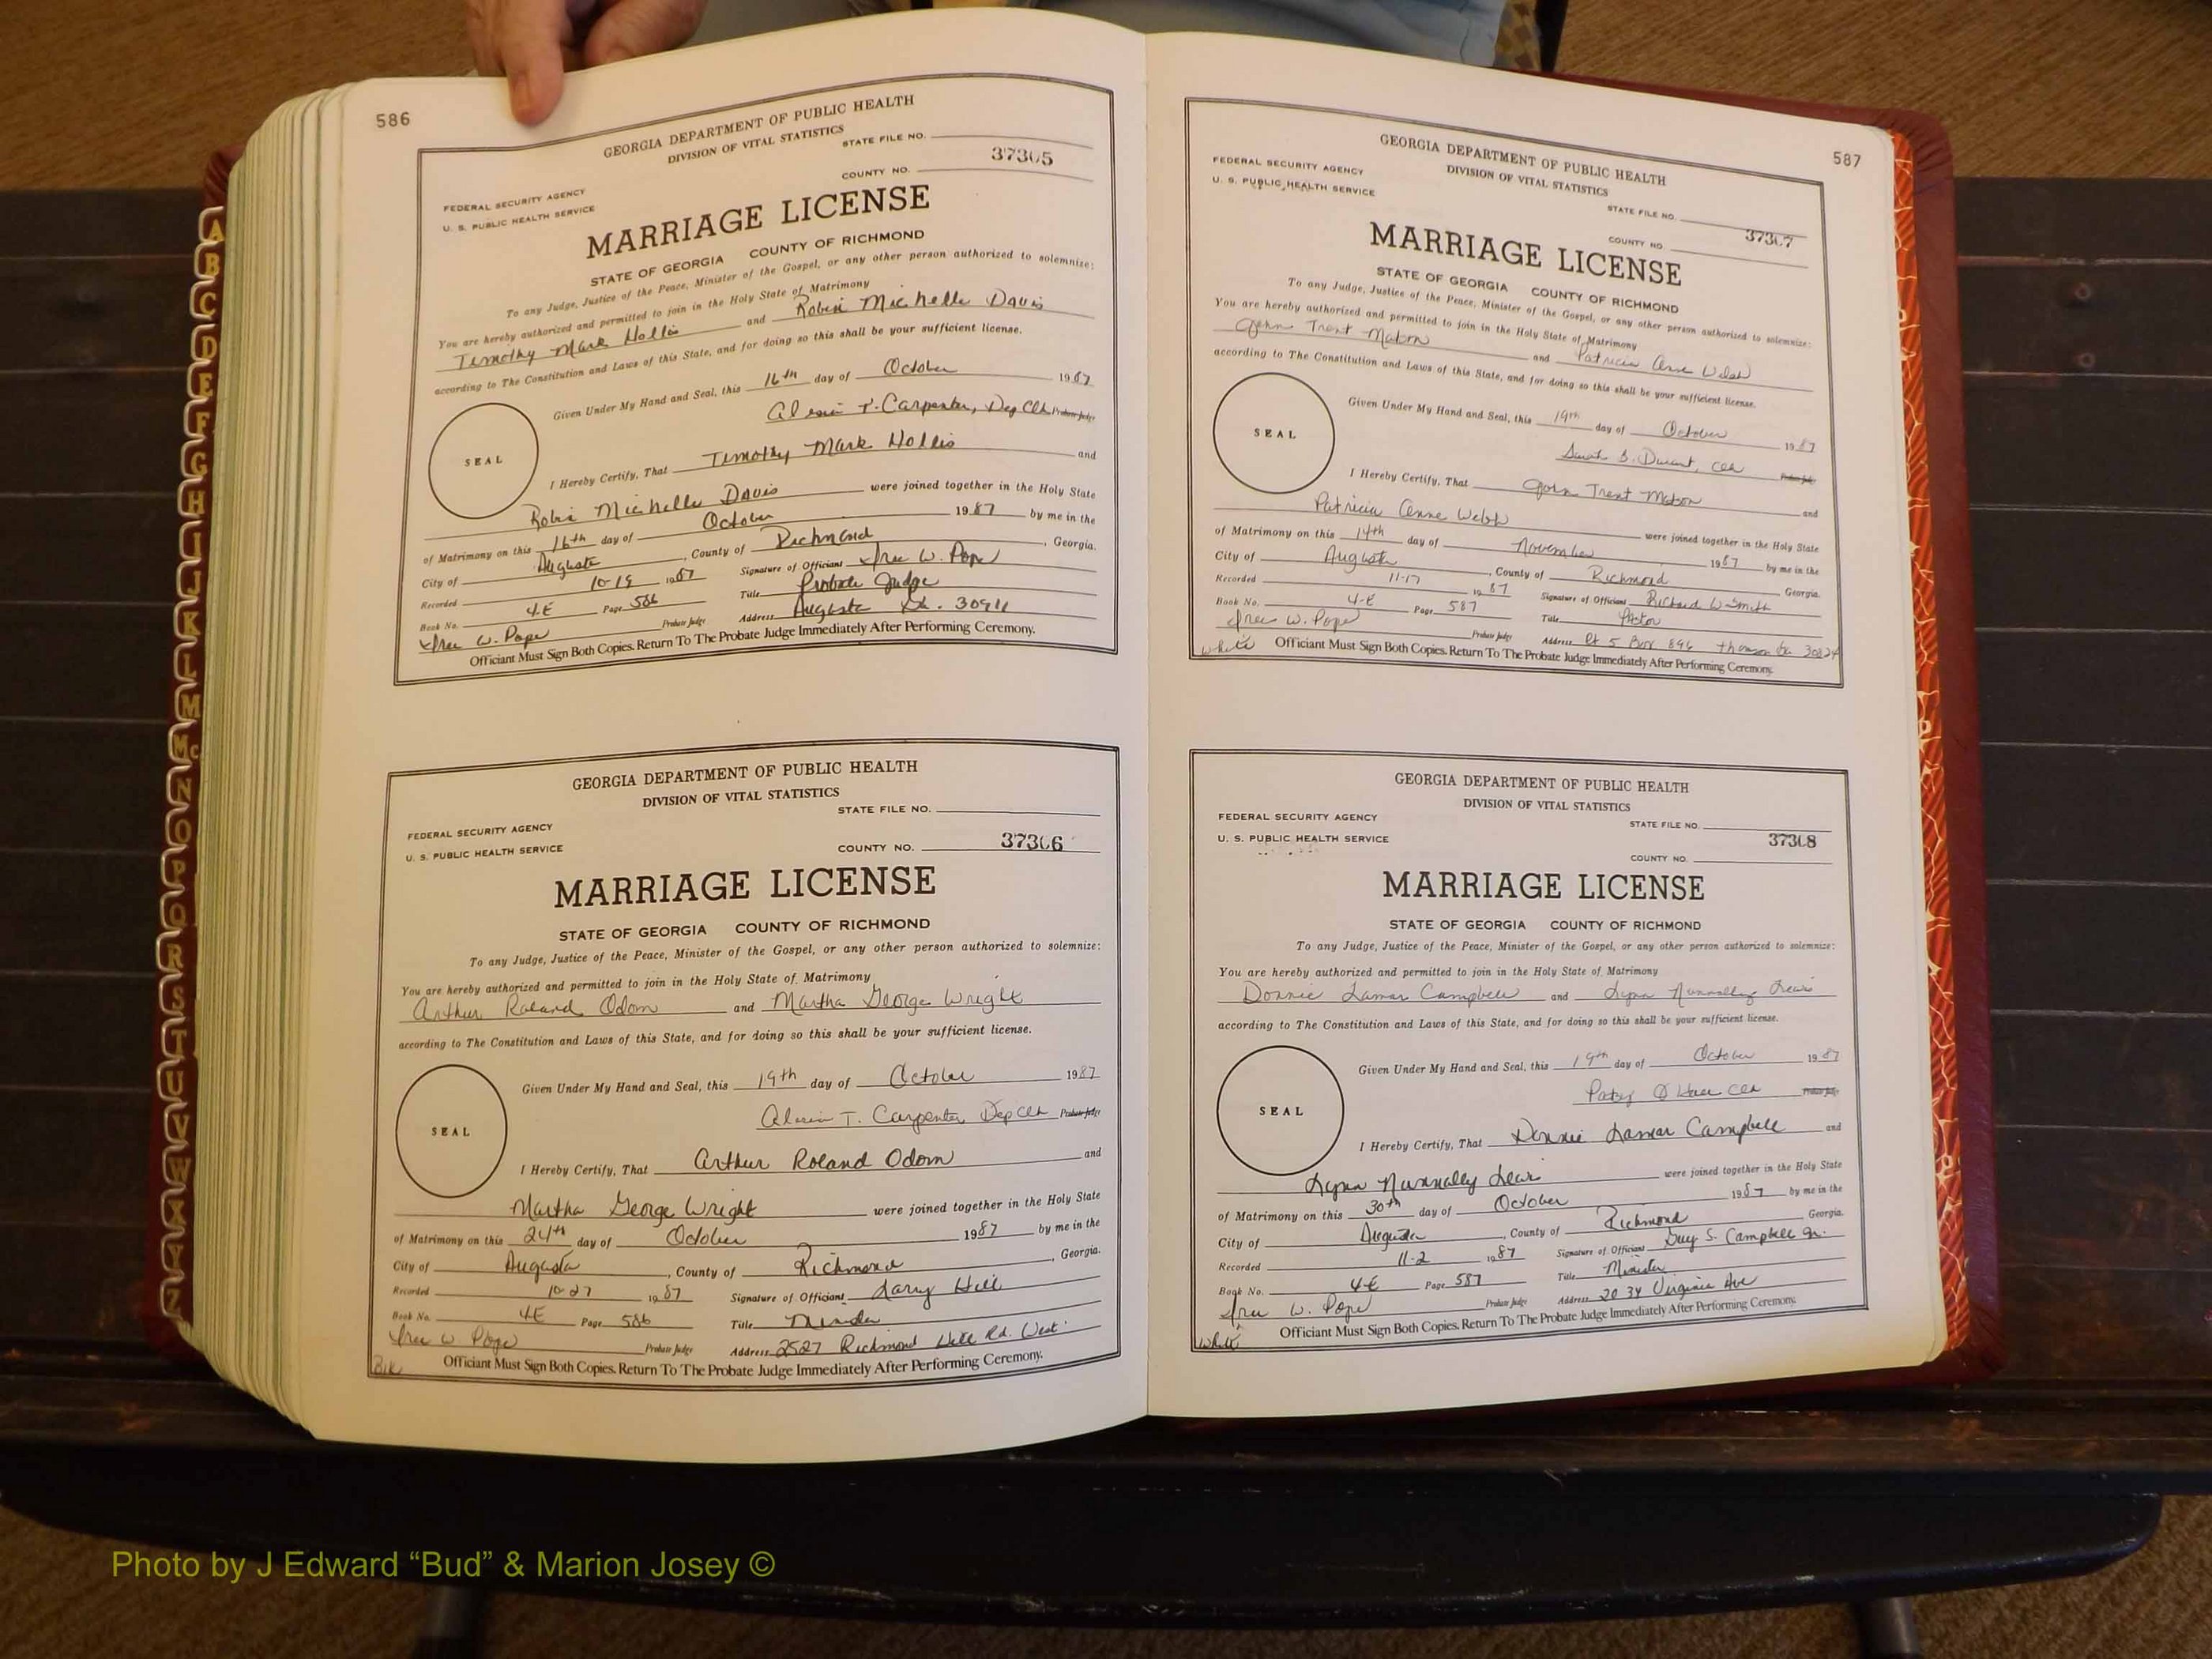 586
GEORGIA DEPARTMENT OF PUBLIC HEALTH
DIVISION OF VITAL STATISTICS
STATE FILE NO.
FEDERAL SECURITY AGENCY
U. S. PUBLIC HEALTH SERVICE
COUNTY NO. 37305
MARRIAGE LICENSE
STATE OF GEORGIA COUNTY OF RICHMOND
To any Judge, Justice of the Peace, Minister of the Gospel, or any other person authorized to solemnize:
You are hereby authorized and permitted to join in the Holy State of Matrimony
Timothy Mark Hollis and Robin Michelle Davis
according to The Constitution and Laws of this State, and for doing so this shall be your sufficient license.
Given Under My Hand and Seal, this 16th day of October 1987
T. Carpenter, Dep Clk Probate Judge
SEAL
I Hereby Certify, That Timothy Mark Hollis and
Robin Michelle Davis were joined together in the Holy State
of Matrimony on this 16th day of October 1987 by me in the
City of Augusta, County of Richmond, Georgia.
Recorded 10-19 1987 Signature of Officiant W. Pope
Book No. 4-E Page 586 Title Probate Judge
W. Pope Probate Judge Address Augusta Ga. 30911
Officiant Must Sign Both Copies. Return To The Probate Judge Immediately After Performing Ceremony.
GEORGIA DEPARTMENT OF PUBLIC HEALTH
DIVISION OF VITAL STATISTICS
STATE FILE NO.
FEDERAL SECURITY AGENCY
U. S. PUBLIC HEALTH SERVICE
COUNTY NO. 37306
MARRIAGE LICENSE
STATE OF GEORGIA COUNTY OF RICHMOND
To any Judge, Justice of the Peace, Minister of the Gospel, or any other person authorized to solemnize:
You are hereby authorized and permitted to join in the Holy State of Matrimony
Arthur Roland Odom and Martha George Wright
according to The Constitution and Laws of this State, and for doing so this shall be your sufficient license.
Given Under My Hand and Seal, this 19th day of October 1987
T. Carpenter, Dep Clk Probate Judge
SEAL
I Hereby Certify, That Arthur Roland Odom and
Martha George Wright were joined together in the Holy State
of Matrimony on this 24th day of October 1987 by me in the
City of Augusta, County of Richmond, Georgia.
Recorded 10-27 1987 Signature of Officiant Larry Hill
Book No. 4E Page 586 Title Minister
W Pope Probate Judge Address 2527 Richmond Hill Rd. West
Blk
Officiant Must Sign Both Copies. Return To The Probate Judge Immediately After Performing Ceremony.
587
GEORGIA DEPARTMENT OF PUBLIC HEALTH
DIVISION OF VITAL STATISTICS
FEDERAL SECURITY AGENCY
U. S. PUBLIC HEALTH SERVICE
STATE FILE NO.
COUNTY NO. 37307
MARRIAGE LICENSE
STATE OF GEORGIA COUNTY OF RICHMOND
To any Judge, Justice of the Peace, Minister of the Gospel, or any other person authorized to solemnize:
You are hereby authorized and permitted to join in the Holy State of Matrimony
John Trent and Patricia Anne Welsh
according to The Constitution and Laws of this State, and for doing so this shall be your sufficient license.
Given Under My Hand and Seal, this 19th day of October 1987
Sarah B. Durant, Clk Probate Judge
SEAL
I Hereby Certify, That John Trent and
Patricia Anne Welsh were joined together in the Holy State
of Matrimony on this 14th day of November 1987 by me in the
City of Augusta, County of Richmond Georgia.
Recorded 11-17 1987 Signature of Officiant Richard W. Smith
Book No. 4-E Page 587 Title Pastor
W. Pope Probate Judge Address Rt 5 Box 896 Thomson Ga 30824
White
Officiant Must Sign Both Copies. Return To The Probate Judge Immediately After Performing Ceremony.
GEORGIA DEPARTMENT OF PUBLIC HEALTH
DIVISION OF VITAL STATISTICS
FEDERAL SECURITY AGENCY
STATE FILE NO.
U. S. PUBLIC HEALTH SERVICE
37308
COUNTY NO.
MARRIAGE LICENSE
STATE OF GEORGIA COUNTY OF RICHMOND
To any Judge, Justice of the Peace, Minister of the Gospel, or any other person authorized to solemnize:
You are hereby authorized and permitted to join in the Holy State of Matrimony
Donnie Lamar Campbell and Lynn Nunnally
according to The Constitution and Laws of this State, and for doing so this shall be your sufficient license.
Given Under My Hand and Seal, this 19th day of October 1987
Clk Probate Judge
SEAL
I Hereby Certify, That Donnie Lamar Campbell and
Lynn Nunnally were joined together in the Holy State
of Matrimony on this 30th day of October 1987 by me in the
City of Augusta, County of Richmond Georgia.
Recorded 11-2 1987 Signature of Officiant Guy S. Campbell Jr.
Book No. 4E Page 587 Title Minister
W. Pope Probate Judge Address 2034 Virginia Ave
White
Officiant Must Sign Both Copies. Return To The Probate Judge Immediately After Performing Ceremony.
A
B
C
D
E
F
G
H
I
J
K
L
M
Mc
N
O
P
Q
R
S
T
U
V
W
X
Y
Z
Photo by J Edward “Bud” & Marion Josey ©